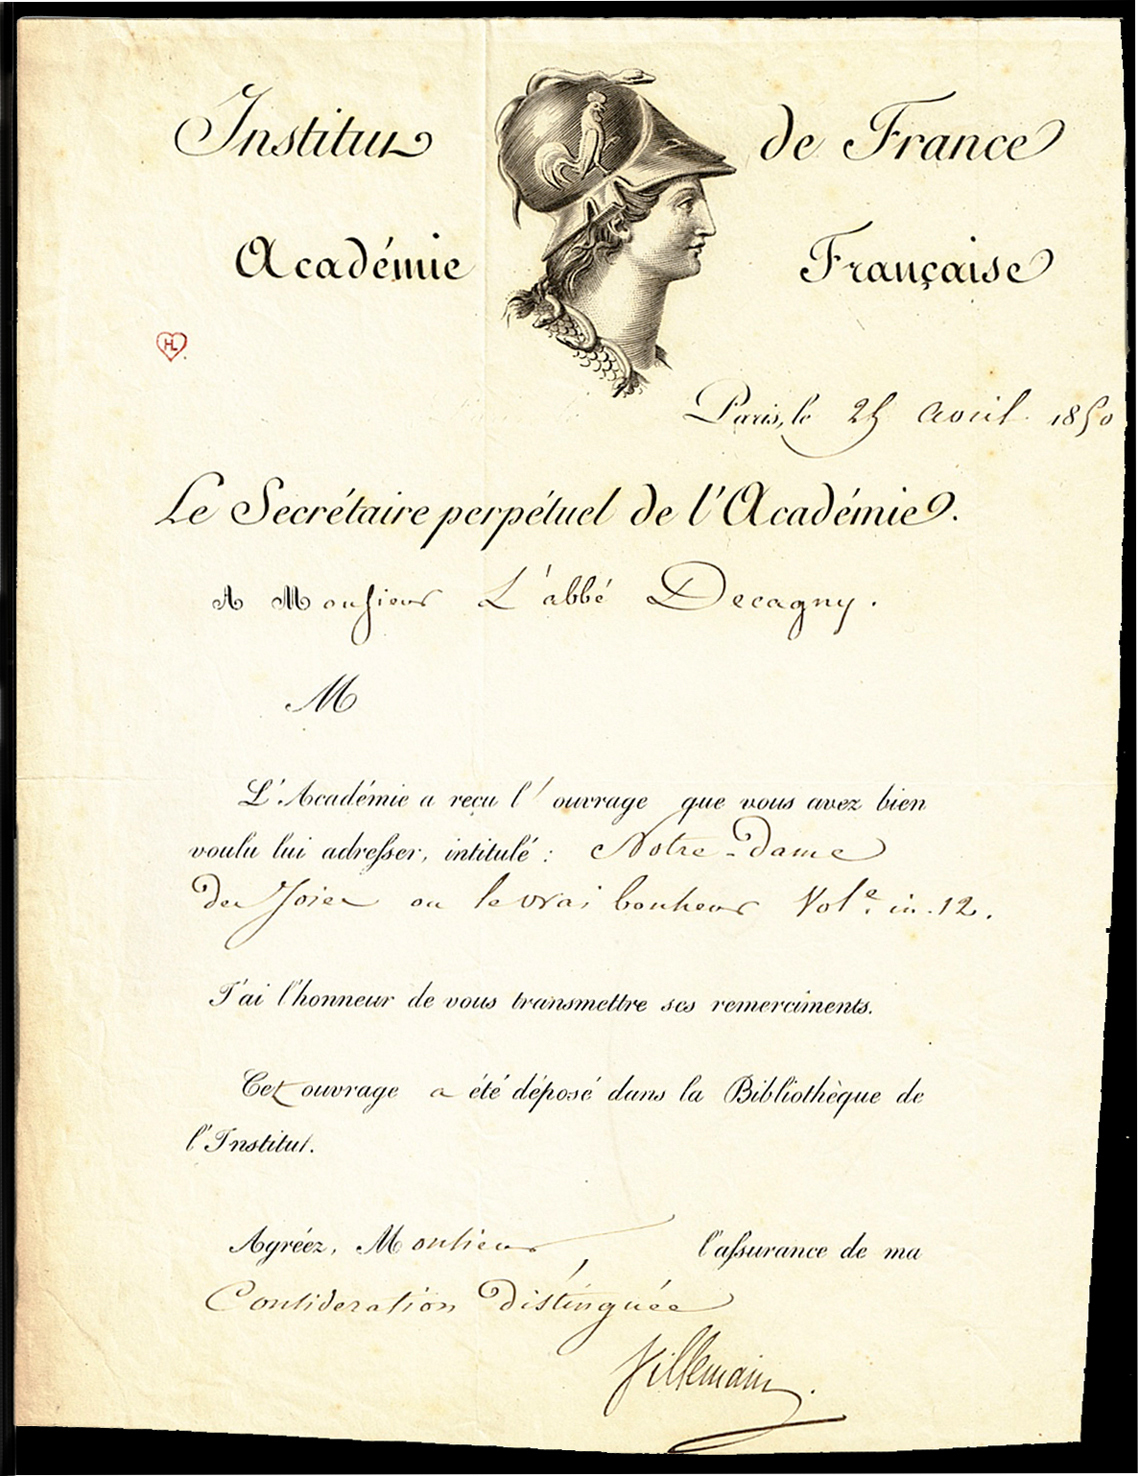 Institut de France
Académie Française
HL
Paris, le 25 avril 1850
Le Secrétaire perpétuel de l'Académie.
A Monsieur L'abbé Decagny.
M
L'Académie a reçu l'ouvrage que vous avez bien
voulu lui adresser, intitulé : Notre-Dame
des Joies ou le vrai bonheur Vol.e in-12.
J'ai l'honneur de vous transmettre ses remerciments.
Cet ouvrage a été déposé dans la Bibliothèque de
l'Institut.
Agréez, Monsieur, l'assurance de ma
Considération distinguée
Villemain.